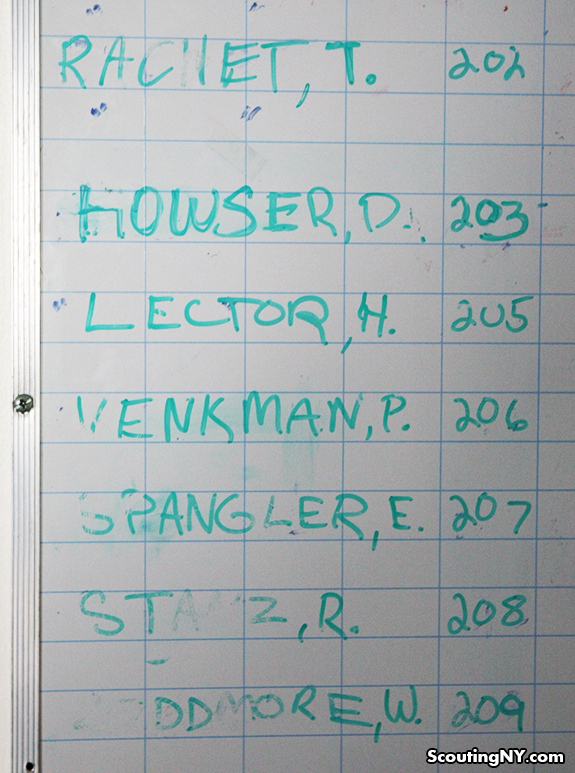 RACHET, T. 202
HOWSER, D. 203
LECTOR, H. 205
VENKMAN, P. 206
SPANGLER, E. 207
STANZ, R. 208
209
ScoutingNY.com